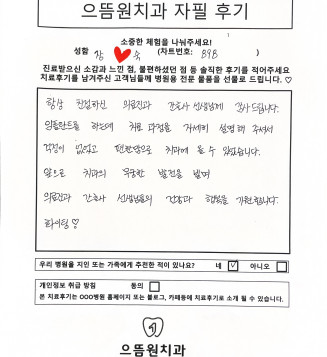 으뜸원치과 자필 후기
소중한 체험을 나눠주세요!
성함 강 숙 (차트번호: 898 )
진료받으신 소감과 느낀 점, 불편하셨던 점 등 솔직한 후기를 적어주세요
치료후기를 남겨주신 고객님들께 병원용 전문 물품을 선물로 드립니다. ♡
항상 친절하신 의료진과 간호사 선생님께 감사드립니다.
임플란트를 하는데 치료 과정을 자세히 설명해 주셔서
걱정이 없었고 편안함으로 치과에 올 수 있었습니다.
앞으로 치과의 무궁한 발전을 빌며
의료진과 간호사 선생님들의 건강과 행복을 기원합니다.
화이팅 ♡
우리 병원을 지인 또는 가족에게 추천한 적이 있나요? 네 ☑ 아니오 ☐
개인정보 취급 방침 동의 ☐
본 치료후기는 OOO병원 홈페이지 또는 블로그, 카페등에 치료후기로 소개 될 수 있습니다.
으뜸원치과